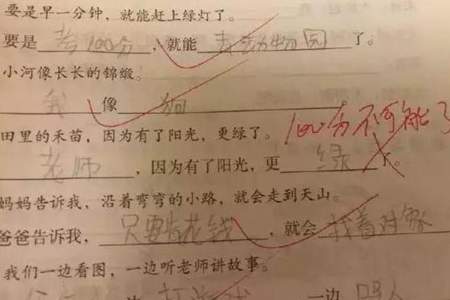 要是早一分钟，就能赶上绿灯了。
要是考100分，就能去动物园了。
小河像长长的锦缎。
我像狗
田里的禾苗，因为有了阳光，更绿了。
100分不可能了
老师，因为有了阳光，更绿了。
妈妈告诉我，沿着弯弯的小路，就会走到天山。
爸爸告诉我，只要肯花钱，就会找着对象
我们一边看图，一边听老师讲故事。
一边